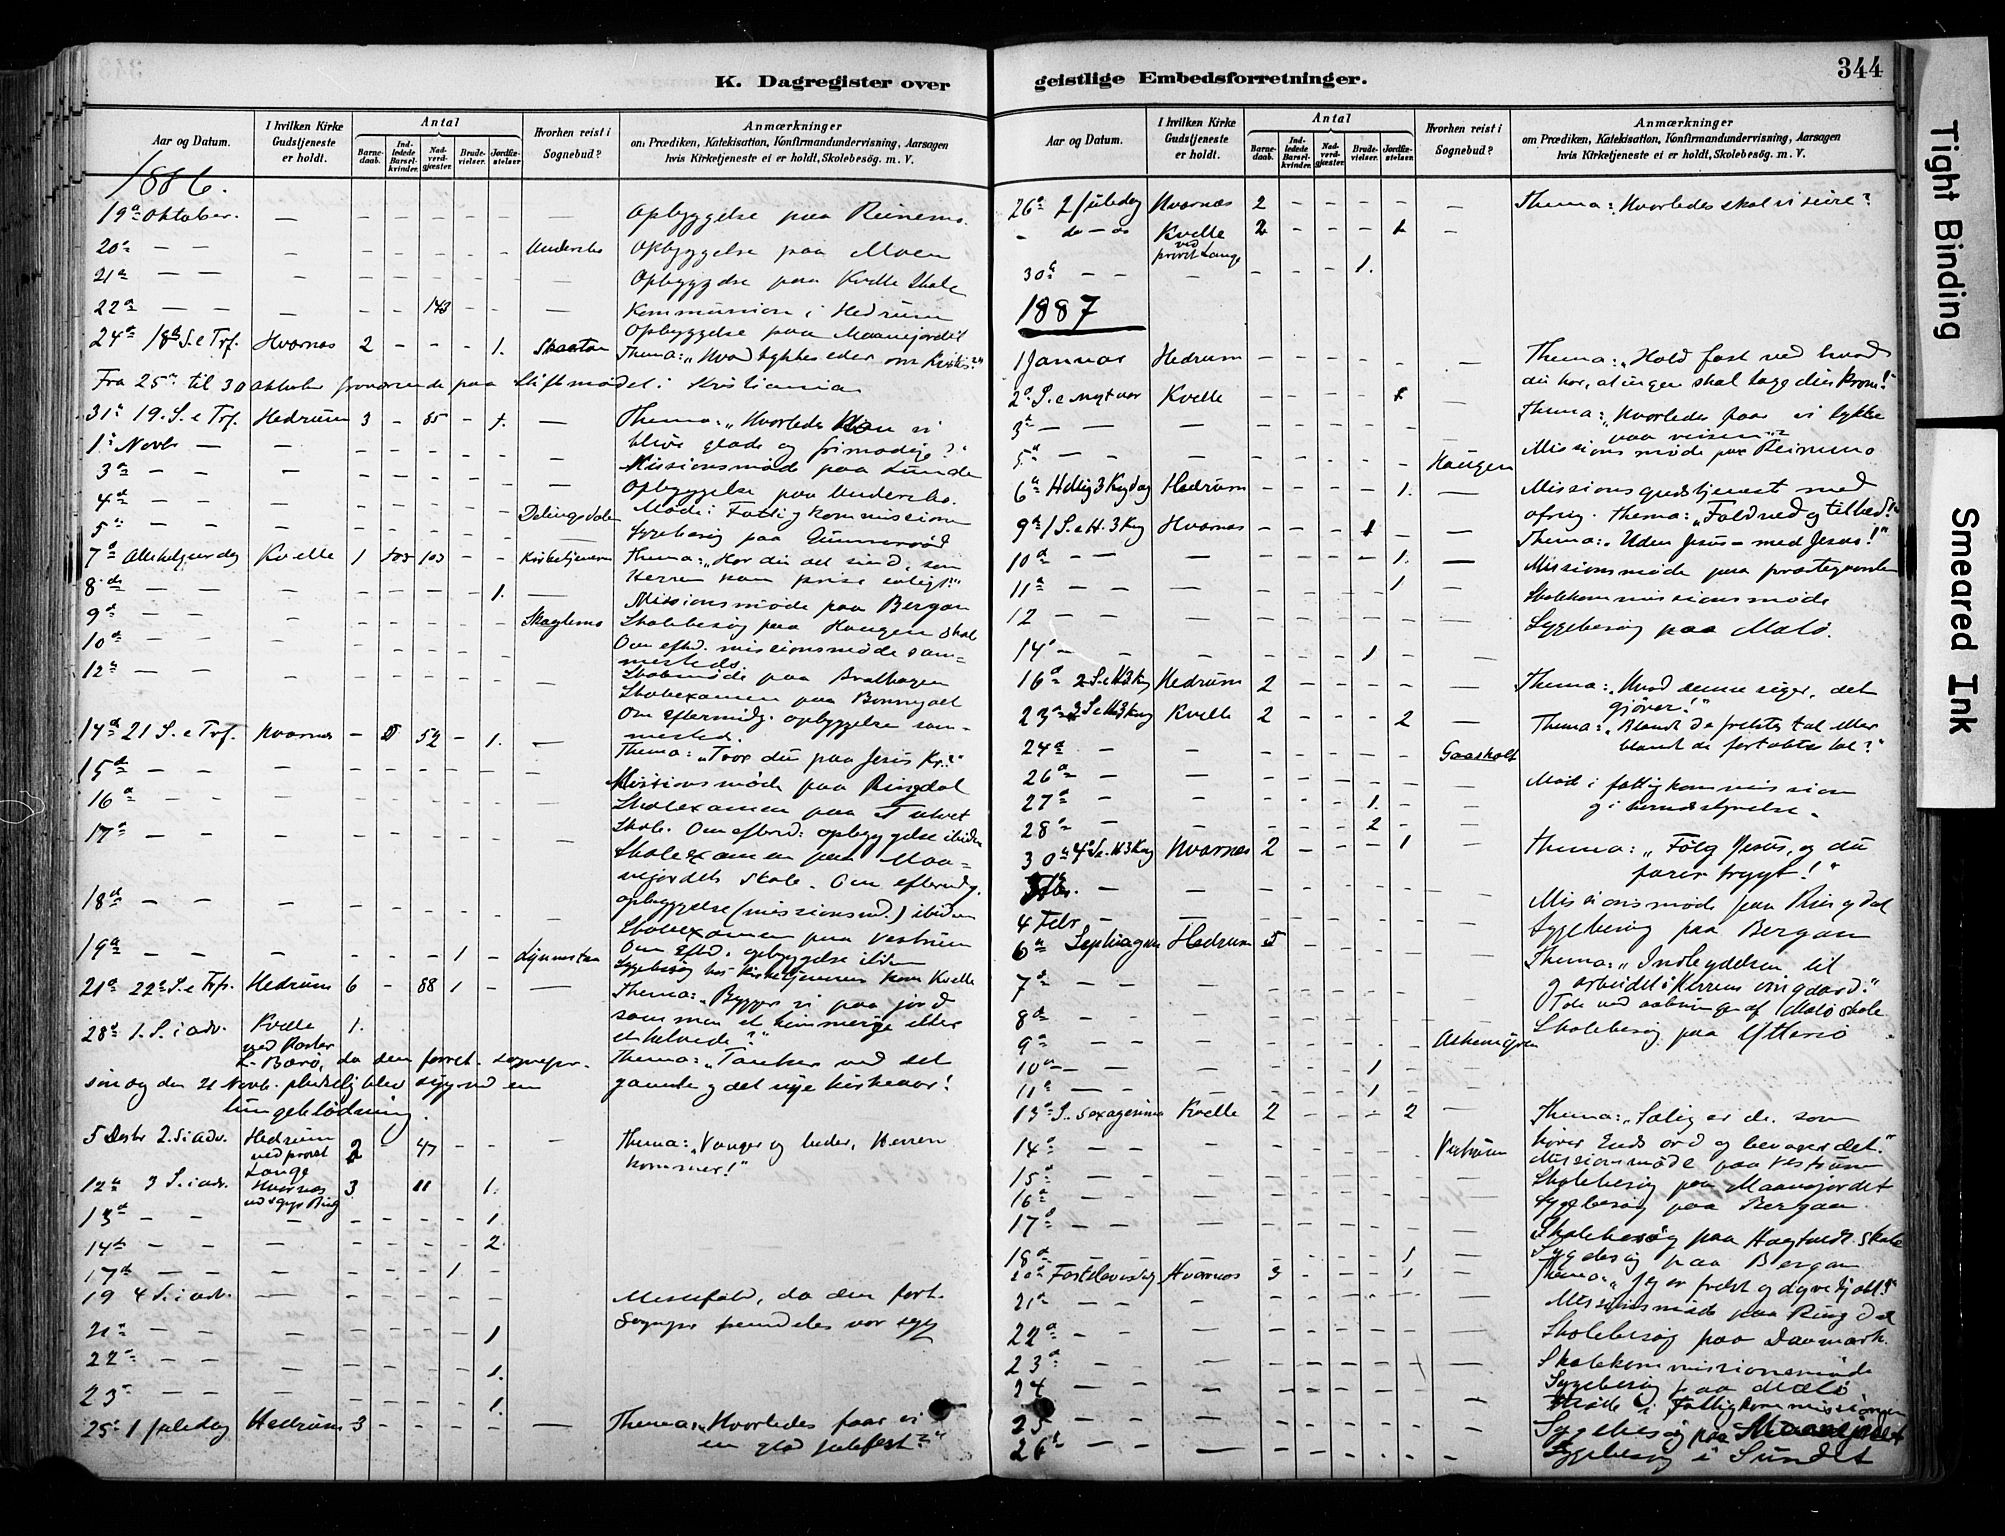 K. Dagregister over
Aar og Datum.
I hvilken Kirke Gudstjeneste er holdt.
Antal
Barne-daab.
Ind-ledede Barsel-kvinder.
Nad-verd-gjæster.
Brude-vielser.
Jordfæ-stelser.
Hvorhen reist i Sognebud?
Anmærkninger
om Prædiken, Katekisation, Konfirmandundervisning, Aarsagen
hvis Kirketjeneste ei er holdt, Skolebesøg. m. V.
1886.
19de Oktober. — — Opbyggelse paa Reinemo.
20de — — Opbyggelse paa Moen
21de — — Opbyggelse paa Kvelle Skole
22de — — 143 — Kommunion i Hedrum
Opbyggelse paa Maanejordet
24de 18de S. e Trf. Hvarnæs 2 — — — 1. Skaatan Thema: „Hvad tykkes eder om Kristus?"
Fra 25de til 30 Oktober fraværende paa Stiftmødet i Kristiania
31te 19. S. e Trf. Hedrum 3 — 85 — Thema: „Hvorledes kan vi
blive glade og frimodige?"
1ste Novb. — — Missionsmøde paa Lunde
3die — Opbyggelse paa Undersbo.
4de — Møde i Fattigkommission
5te — Sygebesøg paa Gunnersrød
7de Allehelgensdag Kvelle 1 103 103 — — Kirketjeneren Thema: „Har du det sind, som
Herren kan prise saligt?"
8de — — 1. — Missionsmøde paa Bergan
9de — — Skaglemo Skolebesøg paa Haugen skole
10de — Om efted. missionsmøde sam-
mesteds.
12te — Skolemøde paa Bratbagen
Skoleexamen paa
Om eftermidg. opbyggelse sam-
mested.
14de 21 S. e Trf. Hvarnæs — 5 52 — 1. — Thema: „Tror du paa Jesus Kr.?"
15de — — Missionsmøde paa Ringdal
16de — — Skoleexamen paa
Skole. Om efterd: opbyggelse ibidem
17de — — Skoleexamen paa Maa-
nejordets skole. Om eftermdg.
opbyggelse (missionsmd.) ibidem
18de — — Skoleexamen paa Vestrum
Om efted. opbyggelse ibidem
19de — — 1 — Sygebesøg hos Kirketjeneren Kvelle
21de 22de S. e Trf. Hedrum 6 — 88 1 — — Thema: „Bygger vi paa jord
som men et himmerige eller
et helvede?"
28de 1. S. i adv. Kvelle 1.
ved Pastor
L. Barø, da den forret. sognepr. Thema: „Tanker ved det
sin og den 21 Novb. pludselig blev syg ved en gamle og det nye kirkeaar!
lungeblødning.
5 Decbr 2. S i adv. Hedrum 2 — 47 — — Thema: „Vaager og beder, Herren
ved provst kommer!"
Lange
12te 3 S. i adv. Hvarnæs 3 11 1.
13de — — — 1.
14de — — 2.
17de — — 1 —
19 4 S. i adv. — Messefald, da den fort.
Sognepr fremdeles var syg
21de — — 1
22de — — 1.
23de — — 1.
25de 1 Juledag Hedrum 3 — — Thema: „Hvorledes faar vi
en glad julefest?"
geistlige Embedsforretninger.
344
Aar og Datum.
I hvilken Kirke Gudstjeneste er holdt.
Antal
Barne-daab.
Ind-ledede Barsel-kvinder.
Nad-verd-gjæster.
Brude-vielser.
Jordfæ-stelser.
Hvorhen reist i Sognebud?
Anmærkninger
om Prædiken, Katekisation, Konfirmandundervisning, Aarsagen
hvis Kirketjeneste ei er holdt, Skolebesøg. m. V.
26de 2 Juledag Hvarnæs 2 — — — — — Thema: „Hvorledes skal vi seire?
— do — do Kvelle 2 — — — 1 —
ved
provst Lange
30te — — 1.
1887
1 Januar Hedrum — — — — — Thema: „Hold fast ved hvad
du har, at ingen skal tage din Krone!"
2den S. e nytaar Kvelle — — — — Thema: „Hvorledes faar vi lykke
paa reisen?"
3de — — Missionsmøde paa Reinemo
5te — — Haugen
6te Hellig 3 Kgdag Hedrum — — — — 1. — Missionsgudstjenest med
ofring. Thema: „Fald ned og tilbed!"
9de 1 S. e H. 3 Kg Hvarnæs — — — 1 — Thema: „Uden Jesus — med Jesus!"
10de — — 1. — Missionsmøde paa prestegaarden
11te — — 1 — Skolekommissionsmøde
12 — — Sygebesøg paa Malø.
14de — — 1 —
16de 2 S. e H 3 Kg Hedrum 2 — — — — — Thema: „Hvad denne siger, det
gjører!"
23de 3 S. e H 3 Kg Kvelle 2 — — — 2 — Thema: „Blandt de frelstes tal eller
blant de fortabtes tal?"
24de — — Gaasholt
26de — Mød i fattigkommission
og i
27de — — 1. —
28de — — 2 —
30te 4de S. e. H 3 Kg Hvarnæs 2 — — — 1 — Thema: „Følg Jesus, og du
farer trygt!"
— — Missionsmøde paa Ringdal
4 Febr. — — Sygebesøg paa Bergan
6te Septuages. Hedrum 5 — — — — Thema: „Indbydelsen til
og arbeidet i Herrens vingaard."
7de — — Tale ved aabningen af Malø skole
8de — — Skolebesøg paa Ytterø
9de — —
10de — — 1
11te — — 1
13de S. sexagesima Kvelle 2 — — — 2 — Thema: „Salig er de som
hører Guds ord og bevarer det."
14de — — Vestrum Missionsmøde paa Vestrum
15de — — Skolebesøg paa Maanejordet
16de — — Sygebesøg paa Bergan.
17de — — Skolebesøg paa Hagtvedt. skole
18de — — 1 — Sygebesøg paa Bergan
20de Fastelavnsdag Hvarnæs 3 — — — 1 — Thema: „Jeg er frelst og dyrekjøbt!"
21de — — Missionsmøde paa Ringdal
22de — — Skolebesøg paa Danmark.
23de — — Skolekommissionsmøde
24 — — Sygebesøg paa Malø
Møde i Fattigkommissionen
25 — — Sygebesøg paa Maanejordet
26de — — Sygebesøg i Sundet
Tight Binding
Smeared Ink